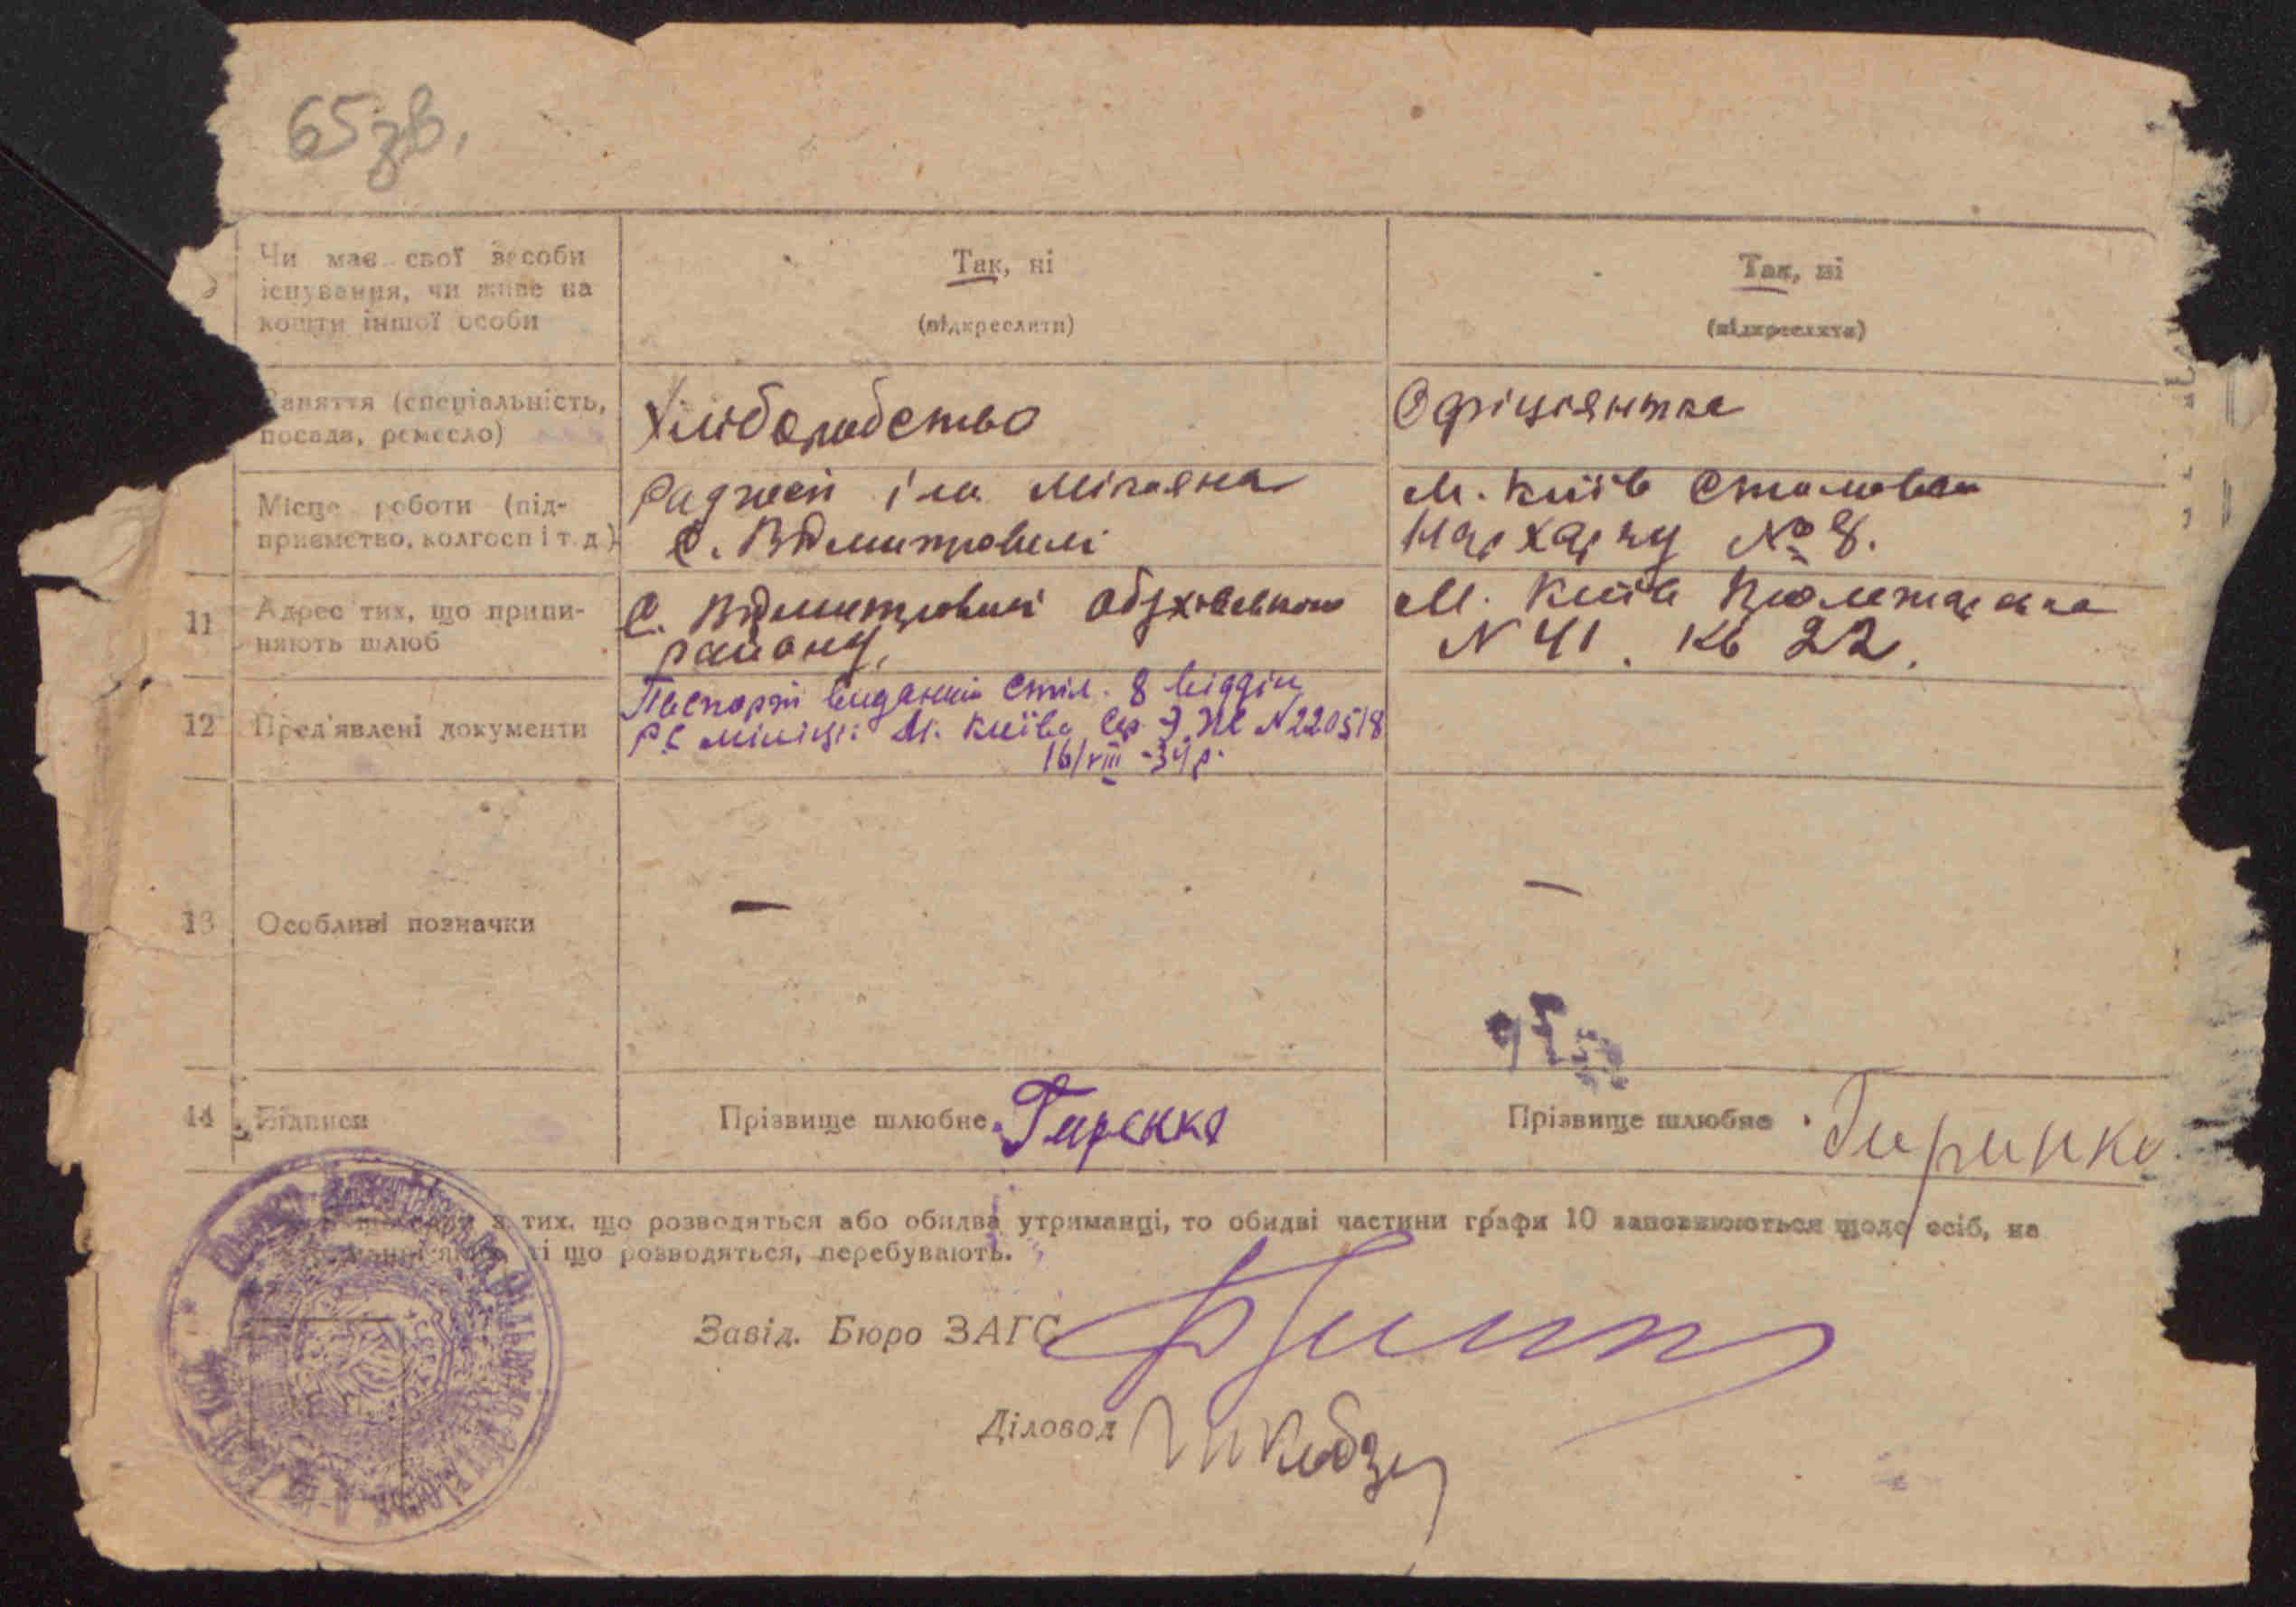 65 зв.
Чи має свої засоби
існування, чи живе на
кошти іншої особи
Так, ні
(підкреслити)
Так, ні
(підкреслити)
Заняття (спеціальність,
посада, ремесло)
Хліборобство
Офіціянтка
Місце роботи (під-
приємство, колгосп і т. д.)
Радгосп ім. Мікояна
с. В Дмитровичі
м. Київ Столова
Нархарчу № 8.
11
Адрес тих, що припи-
няють шлюб
с. В Дмитровичі Обухівського
району,
м. Київ
N 41. Кв 22.
12
Пред'явлені документи
Паспорт виданий Стіл. 8 відділ
РС міліції М. Києва Сер. Э. Ж N 220518
16/VIII -34 р.
13
Особливі позначки
—
—
14
Підписи
Прізвище шлюбне Гиренко
Прізвище шлюбне Гиринко
з тих, що розводяться або обидва утриманці, то обидві частини графи 10 заповнюються щодо осіб, на
ті що розводяться, перебувають.
Завід. Бюро ЗАГС
Діловод